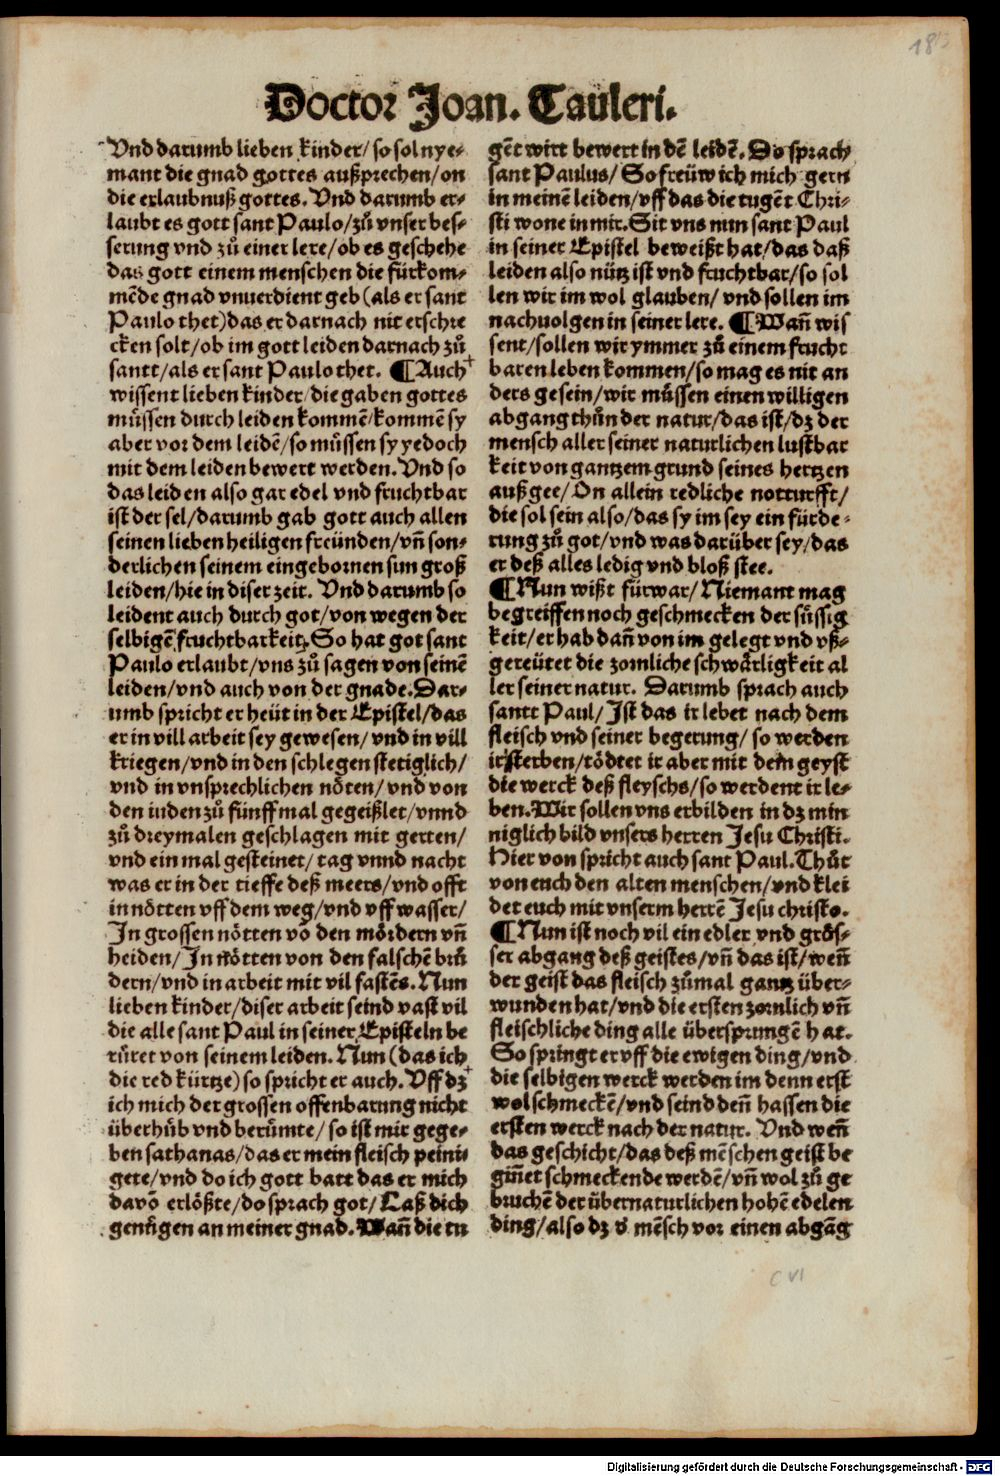 183
Doctor Joan. Tauleri.
Vnd darumb lieben kinder/ so sol nye-
mant die gnad gottes außprechen/on
die erlaubnuß gottes. Vnd darumb er-
laubt es gott sant Paulo/zů vnser bes-
serung vnd zů einer lere/ob es geschehe
das gott einem menschen die fürkom-
mēde gnad vnuerdient geb(als er sant
Paulo thet)das er darnach nit erschre
cken solt/ob im gott leiden darnach zů
santt/als er sant Paulo thet. ¶Auch
wissent lieben kinder/die gaben gottes
müssen durch leiden kommē/kommē sy
aber vor dem leidē/so müssen sy yedoch
mit dem leiden bewert werden. Vnd so
das leiden also gar edel vnd fruchtbar
ist der sel/darumb gab gott auch allen
seinen lieben heiligen freünden/vñ son-
derlichen seinem eingebornen sun groß
leiden/hie in diser zeit. Vnd darumb so
leident auch durch got/von wegen der
selbigē fruchtbarkeit. So hat got sant
Paulo erlaubt/vns zů sagen von seinē
leiden/vnd auch von der gnade. Dar-
umb spricht er heüt in der Epistel/das
er in vill arbeit sey gewesen/vnd in vill
kriegen/vnd in den schlegen stetiglich/
vnd in vnsprechlichen nöten/vnd von
den iuden zů fünff mal gegeißlet/vnnd
zů dreymalen geschlagen mit gerten/
vnd ein mal gesteinet/tag vnnd nacht
was er in der tieffe deß meers/vnd offt
in nötten vff dem weg/vnd vff wasser/
In grossen nötten võ den mördern vñ
heiden/In nötten von den falschē brů
dern/vnd in arbeit mit vil fastēs. Nun
lieben kinder/diser arbeit seind vast vil
die alle sant Paul in seiner Episteln be
rüret von seinem leiden. Nun (das ich
die red kürtze) so spricht er auch. Vff dz
ich mich der grossen offenbarung nicht
überhüb vnd berümte/so ist mir gege-
ben sathanas/das er mein fleisch peini-
gete/vnd do ich gott batt das er mich
davõ erlößte/do sprach got/Laß dich
genügen an meiner gnad. Wañ die tu
gēt wirt bewert in dē leidē. Do sprach
sant Paulus/ So freüw ich mich gern
in meinē leiden/vff das die tugēt Chri-
sti wone in mir. Sit vns nun sant Paul
in seiner Epistel beweißt hat/das daß
leiden also nütz ist vnd fruchtbar/so sol
len wir im wol glauben/ vnd sollen im
nachuolgen in seiner lere. ¶Wañ wis
sent/sollen wir ymmer zů einem frucht
baren leben kommen/so mag es nit an
ders gesein/wir müssen einen willigen
abgang thůn der natur/das ist/dz der
mensch aller seiner naturlichen lustbar
keit von gantzem grund seines hertzen
außgee/On allein redliche notturfft/
die sol sein also/das sy im sey ein fürde-
rung zů got/vnd was darüber sey/das
er deß alles ledig vnd bloß stee.
¶Nun wißt fürwar/Niemant mag
begreiffen noch geschmecken der süssig
keit/er hab dañ von im gelegt vnd vß-
gereütet die zornliche schwärligkeit al
ler seiner natur. Darumb sprach auch
santt Paul/Ist das ir lebet nach dem
fleisch vnd seiner begerung/ so werden
ir sterben/tödtet ir aber mit dem geyst
die werck deß fleyschs/so werdent ir le-
ben. Wir sollen vns erbilden in dz min
niglich bild vnsers herren Jesu Christi.
Hier von spricht auch sant Paul. Thůt
von euch den alten menschen/vnd klei
det euch mit vnserm herrē Jesu christo.
¶Nun ist noch vil ein edler vnd grös-
ser abgang deß geistes/vñ das ist/weñ
der geist das fleisch zůmal gantz über-
wunden hat/vnd die ersten zornlich vñ
fleischliche ding alle übersprungē hat.
So springt er vff die ewigen ding/vnd
die selbigen werck werden im denn erst
wol schmeckē/vnd seind deñ hassen die
ersten werck nach der natur. Vnd weñ
das geschicht/das deß mēschen geist be
giñet schmeckende werdē/vñ wol zů ge
bruchē der übernaturlichen hohē edelen
ding/also dz d' mēsch vor einen abgāg
c vi
Digitalisierung gefördert durch die Deutsche Forschungsgemeinschaft - DFG